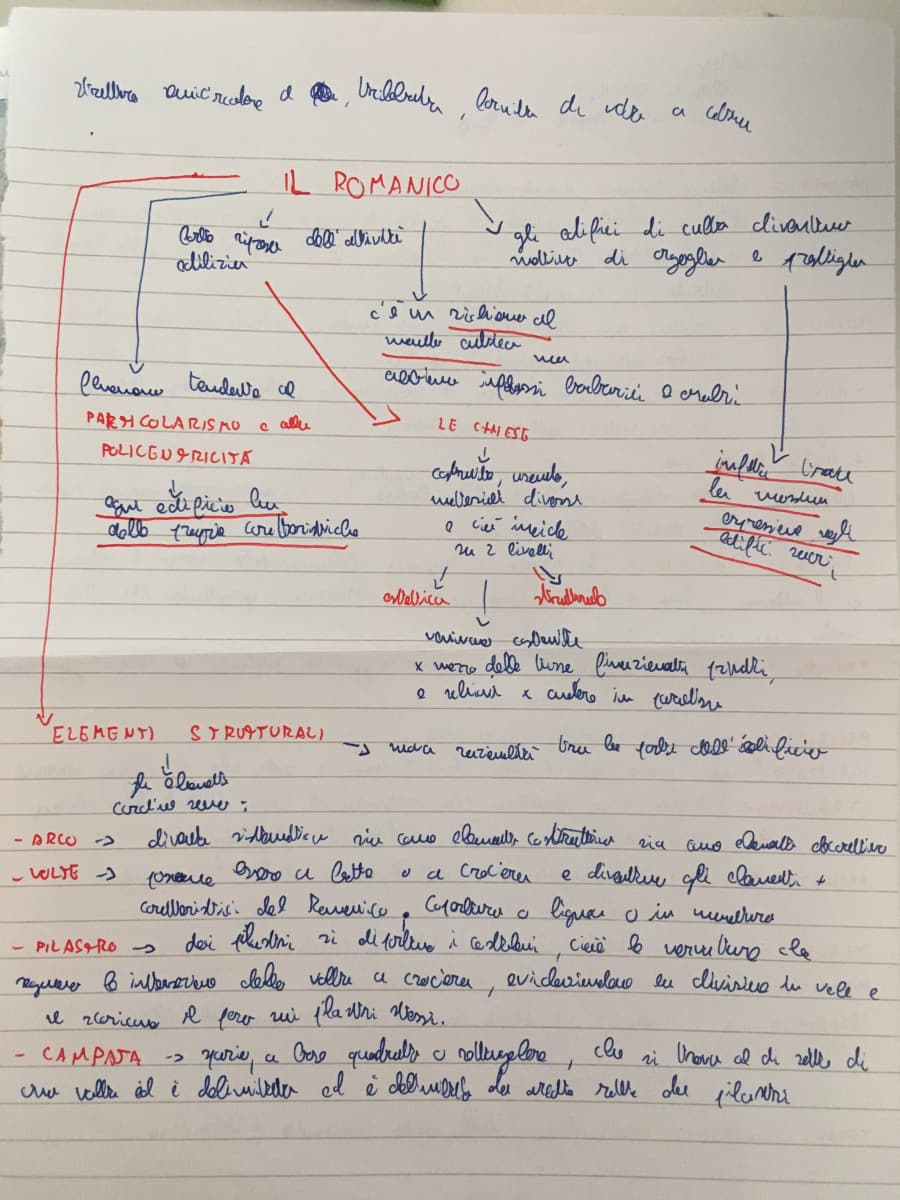 struttura semicircolare o, trilobata, fornita di volte a
IL ROMANICO
forte ripresa dell'attività
edilizia
gli edifici di culto diventano
motivo di orgoglio e prestigio
c'è un richiamo al
mondo antico ma
influssi barbarici e arabi
fenomeno tendente al
PARTICOLARISMO e alla
POLICENTRICITÀ
ogni edificio ha
delle proprie caratteristiche
LE CHIESE
costruite, usando,
materiali diversi
e ciò incide
su 2 livelli
estetico strutturale
infatti trova
la massima
espressione negli
edifici sacri,
venivano costruite
x mezzo delle finanziate
e x andare in paradiso
ELEMENTI STRUTTURALI
→ nuova razionalità tra le parti dell'edificio
gli elementi
cardine sono:
- ARCO → diventa sistematico sia come elemento costruttivo sia come elemento decorativo
- VOLTE → possono essere a botte o a crociera e diventano gli elementi +
caratteristici del Romanico. Copertura o lignea o in muratura
- PILASTRO → dai pilastri si dipartono i costoloni, cioè le nervature che
seguono le intersezioni delle volte a crociera, evidenziando la divisione in vele e
ne scaricano il peso sui pilastri stessi.
- CAMPATA → spazio, a base quadrata o rettangolare, che si trova al di sotto di
una volta ed è delimitata ed è delimitato da archi retti da pilastri